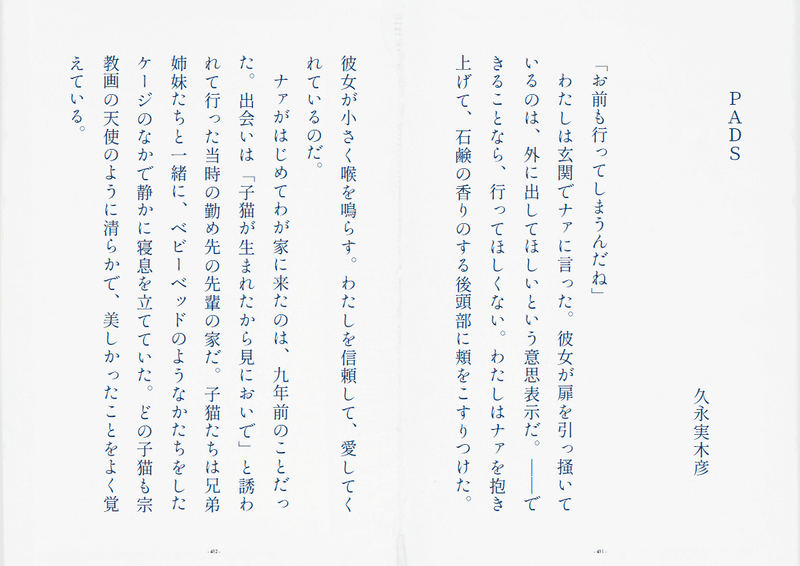 PADS
久永実木彦
「お前も行ってしまうんだね」
わたしは玄関でナァに言った。彼女が扉を引っ掻いて
いるのは、外に出してほしいという意思表示だ。――で
きることなら、行ってほしくない。わたしはナァを抱き
上げて、石鹸の香りのする後頭部に頬をこすりつけた。
- 451 -
彼女が小さく喉を鳴らす。わたしを信頼して、愛してく
れているのだ。
ナァがはじめてわが家に来たのは、九年前のことだっ
た。出会いは「子猫が生まれたから見においで」と誘わ
れて行った当時の勤め先の先輩の家だ。子猫たちは兄弟
姉妹たちと一緒に、ベビーベッドのようなかたちをした
ケージのなかで静かに寝息を立てていた。どの子猫も宗
教画の天使のように清らかで、美しかったことをよく覚
えている。
- 452 -